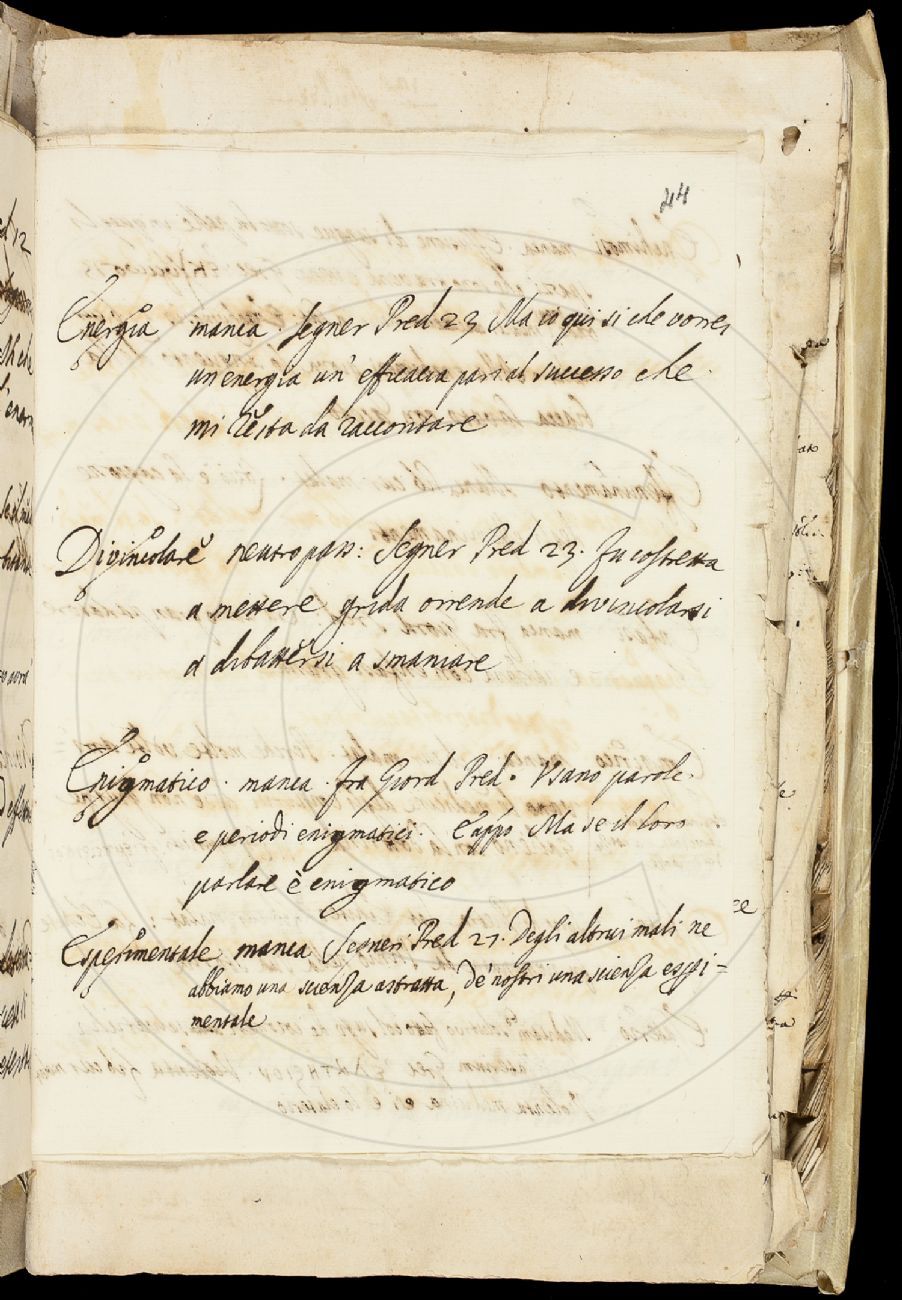 44
Energia manca. Segner Pred 23 Ma io qui si che vorrei
un'energia un' efficacia pari al successo che
mi resta da raccontare
Divincolare neutro pass: Segner Pred 23. fu costretta
a mettere grida orrende a divincolarsi
a dibattersi a smaniare
Enigmatico. manca. fra Giord Pred. Usano parole
e periodi enigmatici. E appo Ma se il loro
parlare è enigmatico
Esperimentale manca Segneri Pred 27. Degli altrui mali ne
abbiamo una scienza astratta, de' nostri una scienza esperi=
mentale